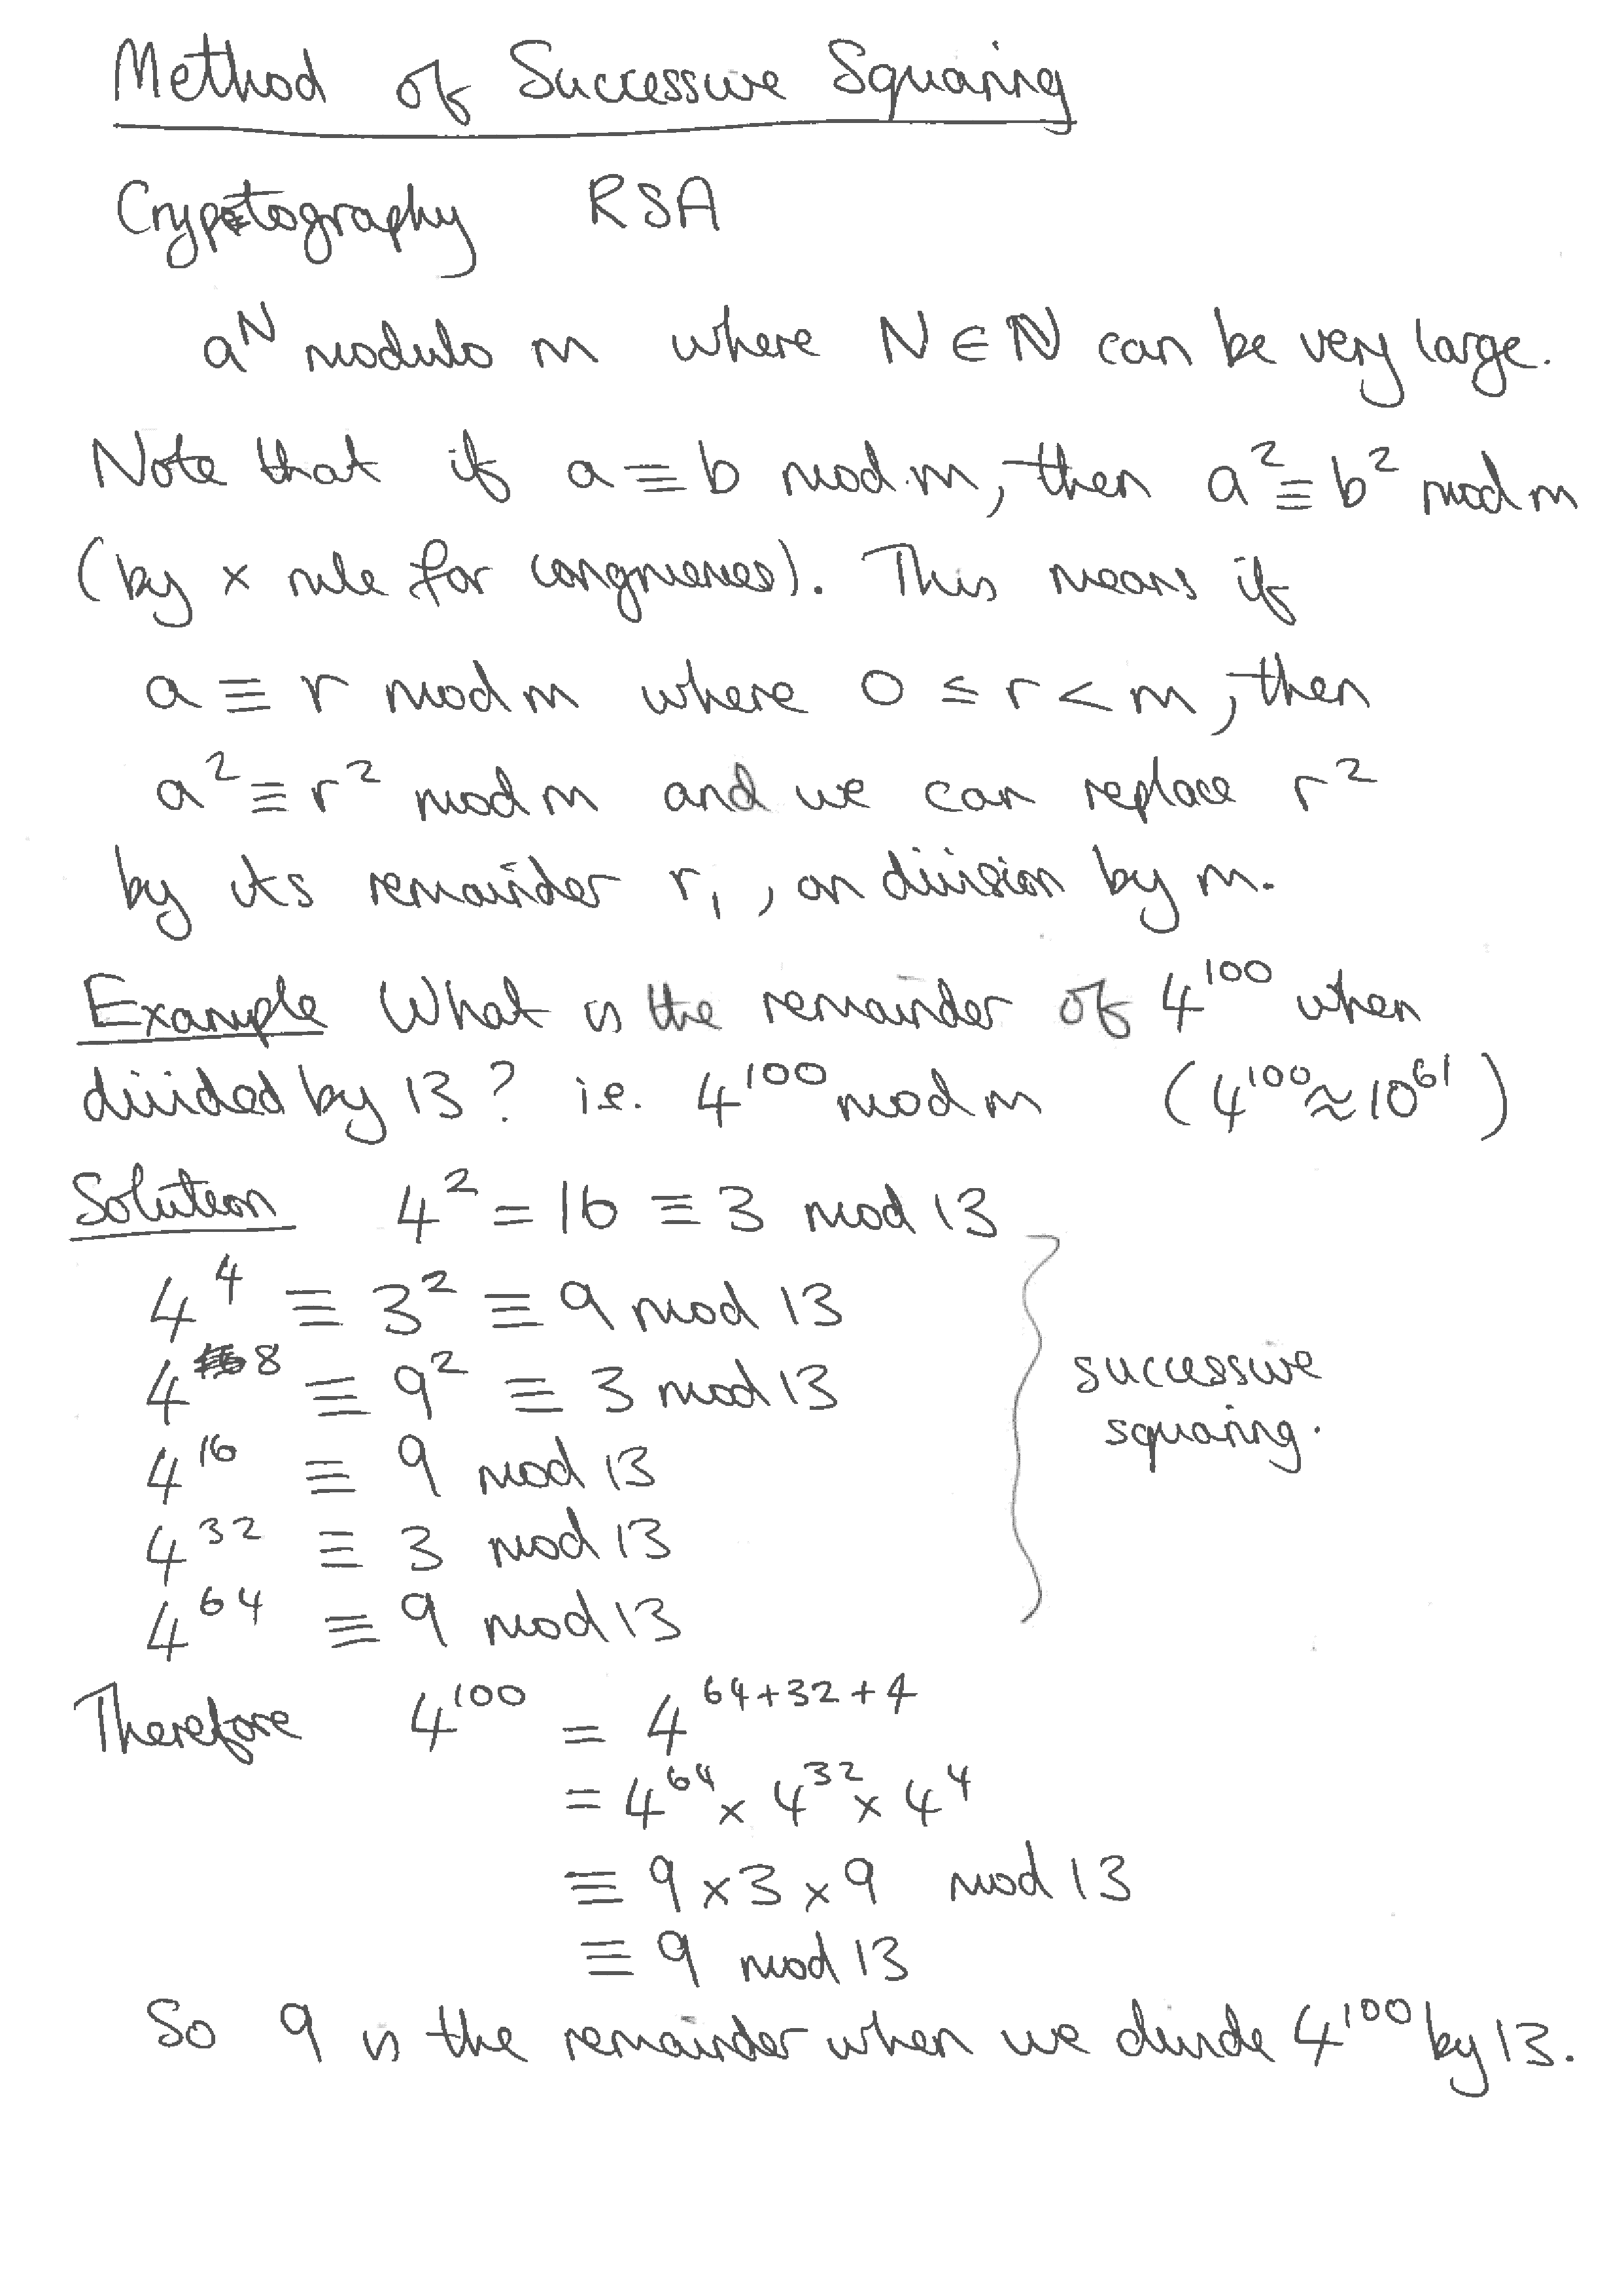 Method of Successive Squaring
Cryptography RSA
a^N modulo m where N ∈ ℕ can be very large.
Note that if a ≡ b mod m, then a² ≡ b² mod m
(by × rule for congruences). This means if
a ≡ r mod m where 0 ≤ r < m, then
a² ≡ r² mod m and we can replace r²
by its remainder r₁, on division by m.
Example What is the remainder of 4^100 when
divided by 13? i.e. 4^100 mod m (4^100 ≈ 10^61)
Solution 4² = 16 ≡ 3 mod 13
4^4 ≡ 3² ≡ 9 mod 13
4^8 ≡ 9² ≡ 3 mod 13
4^16 ≡ 9 mod 13
4^32 ≡ 3 mod 13
4^64 ≡ 9 mod 13
successive
squaring.
Therefore 4^100 = 4^(64+32+4)
= 4^64 × 4^32 × 4^4
≡ 9 × 3 × 9 mod 13
≡ 9 mod 13
So 9 is the remainder when we divide 4^100 by 13.